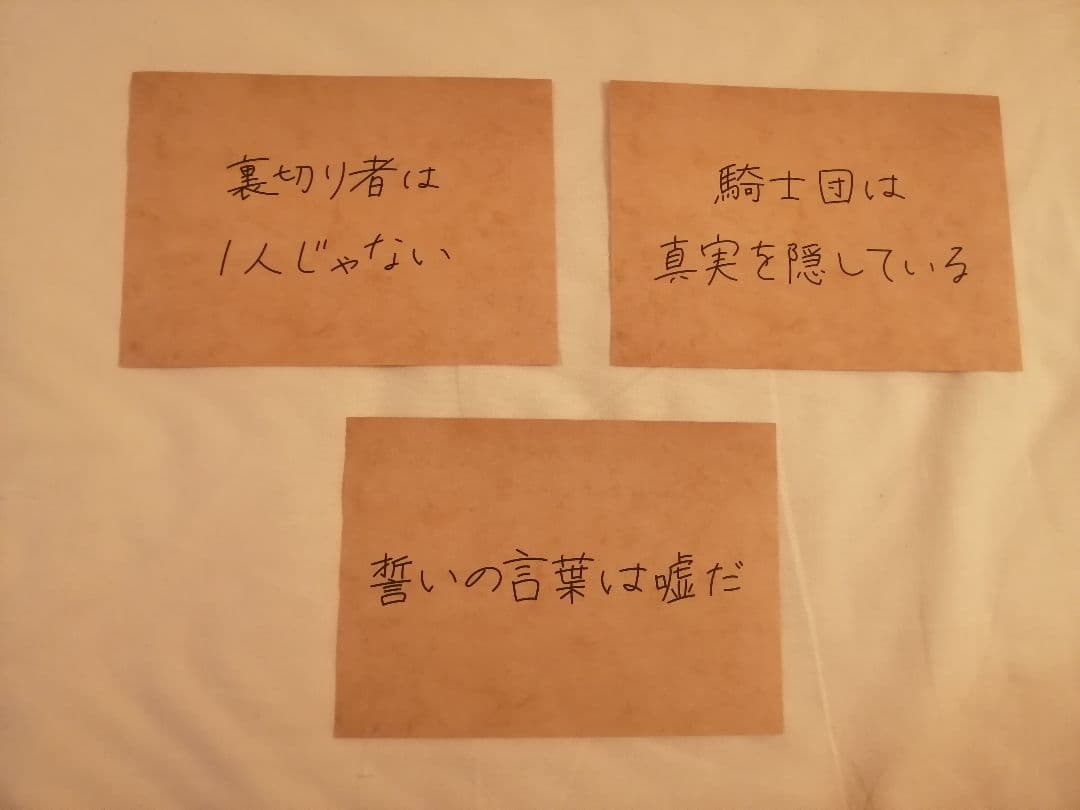 裏切り者は
1人じゃない
騎士団は
真実を隠している
誓いの言葉は嘘だ